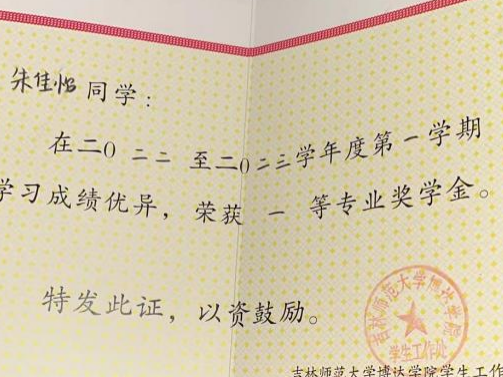 朱佳怡同学：
在二0二二至二0二三学年度第一学期
学习成绩优异，荣获一等专业奖学金。
特发此证，以资鼓励。
吉林师范大学博达学院
学生工作处
吉林师范大学博达学院学生工作